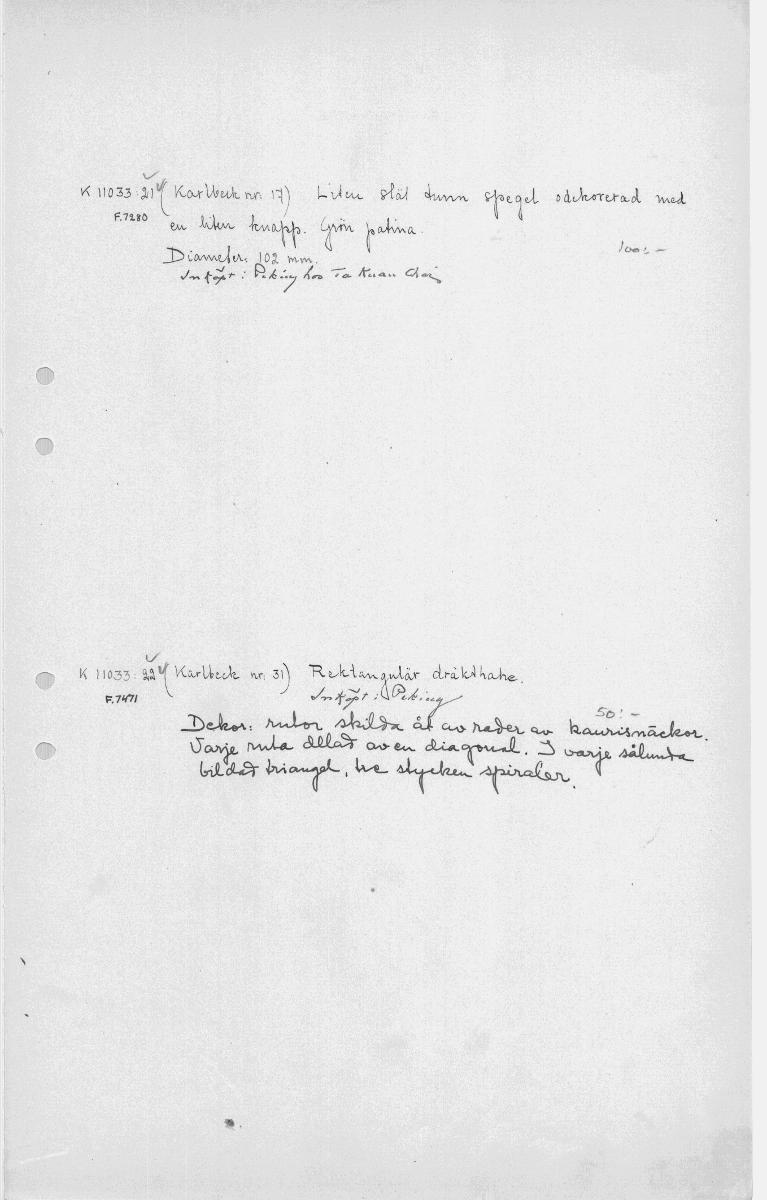 K 11033:21 (Karlbeck nr. 17) Liten slät tunn spegel odekorerad med
F.7280
en liten knapp. Grön patina.
100:-
Diameter: 102 mm.
Inköpt i Peking hos Ta Kuan Chai
K 11033:22 (Karlbeck nr. 31) Rektangulär dräkthake.
F.7471
Inköpt i Peking
50:-
Dekor: rutor skilda åt av rader av kaurisnäckor.
Varje ruta delad av en diagonal. I varje sålunda
bildad triangel, tre stycken spiraler.